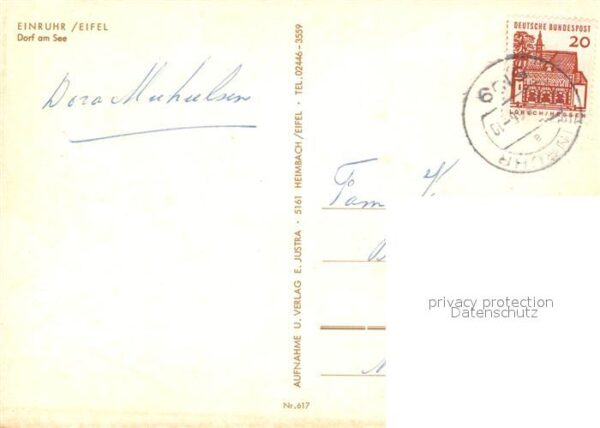 EINRUHR /EIFEL
Dorf am See
DEUTSCHE BUNDESPOST
20
LORSCH/HESSEN
EINRUHR
Dora
AUFNAHME U. VERLAG E. JUSTRA · 5161 HEIMBACH/EIFEL · TEL. 02446-3559
Fam
privacy protection
Datenschutz
Nr. 617